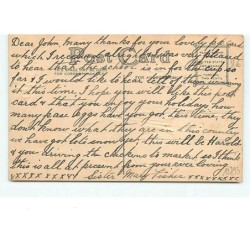 Dear John, Many thanks for your lovely p card
which I received alright. I was so pleased
to hear that the school is in for the cup so
far & I would like to hear tell of them winning
it this time. I hope you will like this post
card & that you enjoy your holidays how
many pase eggs have you got this time, they
dont know what they are in this country
we have got lots snow yet, this will be Harolds
& you driving the chickens to market so I think
this is all at present from your ever loving
xxxx xxxxx Sister Mary Fisher. xxxxxxxxx
Post Card